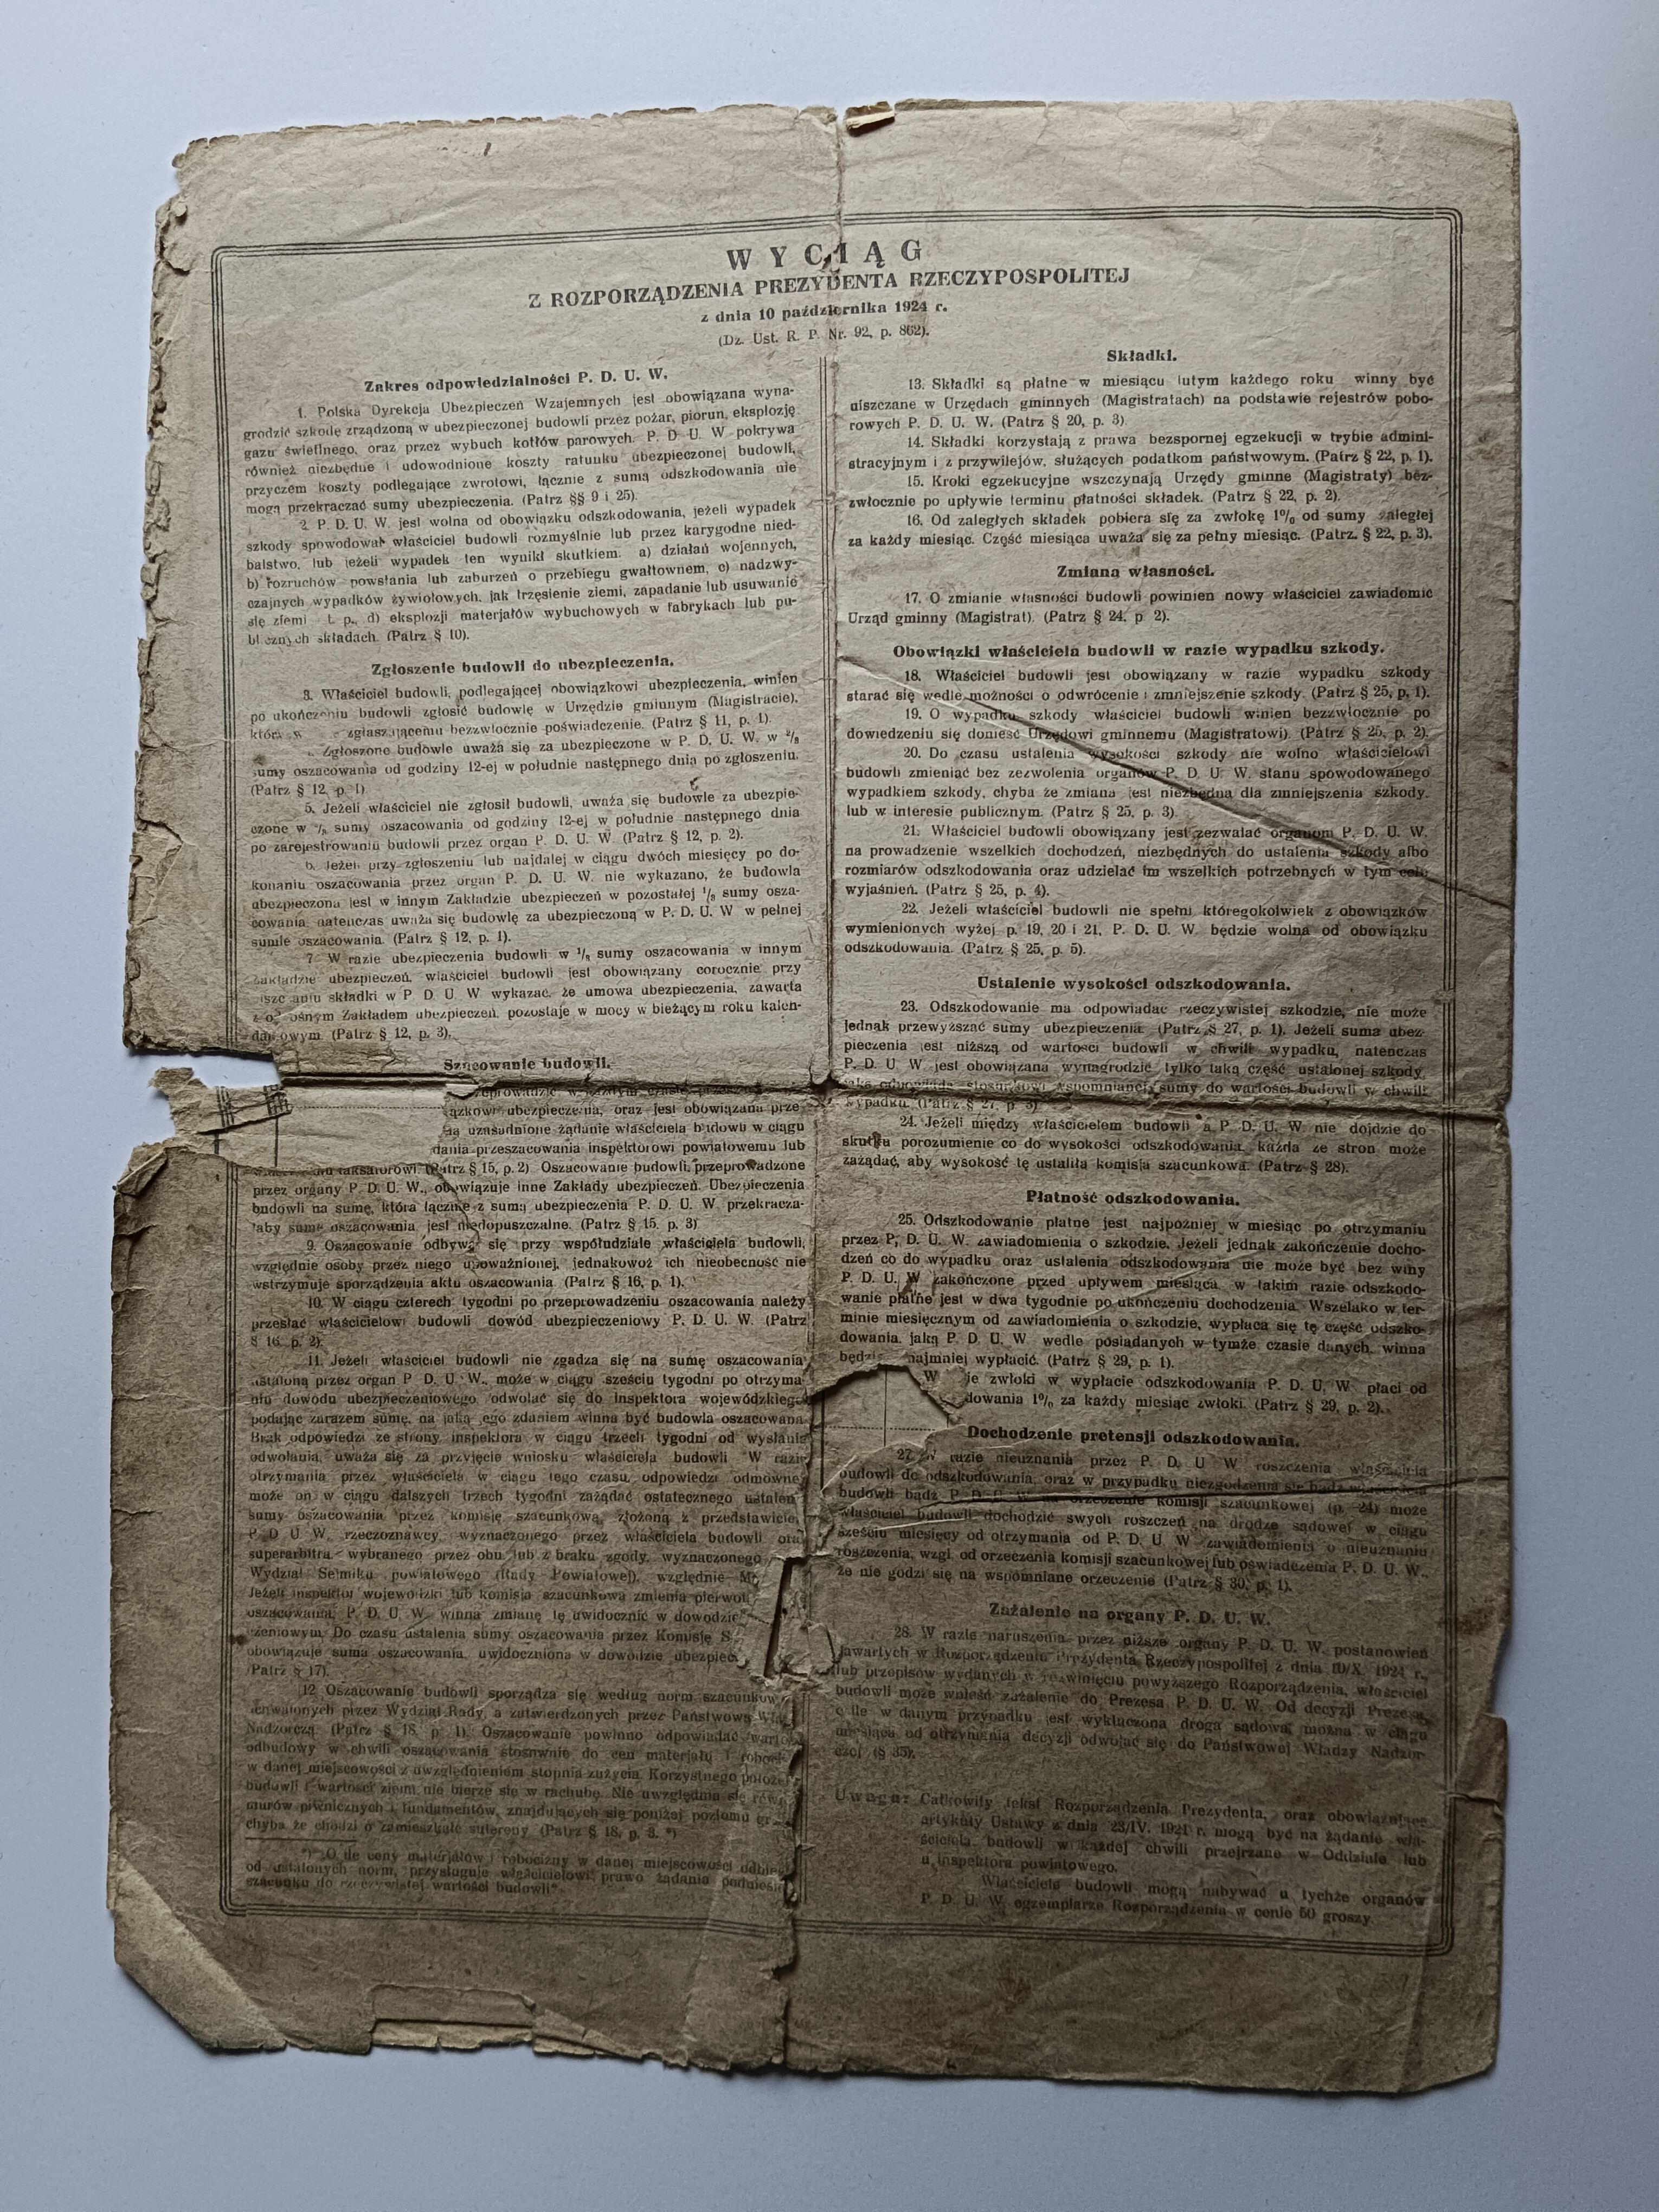 WYCIĄG
Z ROZPORZĄDZENIA PREZYDENTA RZECZYPOSPOLITEJ
z dnia 10 października 1924 r.
(Dz. Ust. R. P. Nr. 92, p. 862).
Zakres odpowiedzialności P. D. U. W.
1. Polska Dyrekcja Ubezpieczeń Wzajemnych jest obowiązana wyna-
grodzić szkodę zrządzoną w ubezpieczonej budowli przez pożar, piorun, eksplozję
gazu świetlnego, oraz przez wybuch kotłów parowych. P. D. U. W pokrywa
również niezbędne i udowodnione koszty ratunku ubezpieczonej budowli,
przyczem koszty podlegające zwrotowi, łącznie z sumą odszkodowania nie
mogą przekraczać sumy ubezpieczenia. (Patrz §§ 9 i 25).
2. P. D. U. W. jest wolna od obowiązku odszkodowania, jeżeli wypadek
szkody spowodował właściciel budowli rozmyślnie lub przez karygodne nied-
balstwo, lub jeżeli wypadek ten wynikł skutkiem: a) działań wojennych,
b) rozruchów powstania lub zaburzeń o przebiegu gwałtownem, c) nadzwy-
czajnych wypadków żywiołowych, jak trzęsienie ziemi, zapadanie lub usuwanie
się ziemi t. p., d) eksplozji materjałów wybuchowych w fabrykach lub pu-
blicznych składach. (Patrz § 10).
Zgłoszenie budowli do ubezpieczenia.
3. Właściciel budowli, podlegającej obowiązkowi ubezpieczenia, winien
po ukończeniu budowli zgłosić budowlę w Urzędzie gminnym (Magistracie),
zgłaszającemu bezzwłocznie poświadczenie. (Patrz § 11, p. 1).
Zgłoszone budowle uważa się za ubezpieczone w P. D. U. W. w ²/₃
sumy oszacowania od godziny 12-ej w południe następnego dnia po zgłoszeniu.
(Patrz § 12, p. 1)
5. Jeżeli właściciel nie zgłosił budowli, uważa się budowlę za ubezpie-
czone w ²/₃ sumy oszacowania od godziny 12-ej w południe następnego dnia
po zarejestrowaniu budowli przez organ P. D. U. W. (Patrz § 12, p. 2).
6. Jeżeli przy zgłoszeniu lub najdalej w ciągu dwóch miesięcy po do-
konaniu oszacowania przez organ P. D. U. W. nie wykazano, że budowla
ubezpieczona jest w innym Zakładzie ubezpieczeń w pozostałej ¹/₃ sumy osza-
cowania, natenczas uważa się budowlę za ubezpieczoną w P. D. U. W w pełnej
sumie oszacowania. (Patrz § 12, p. 1).
7. W razie ubezpieczenia budowli w ¹/₃ sumy oszacowania w innym
Zakładzie ubezpieczeń, właściciel budowli jest obowiązany corocznie przy
składki w P. D. U. W wykazać, że umowa ubezpieczenia, zawarta
z odnośnym Zakładem ubezpieczeń, pozostaje w mocy w bieżącym roku kalen-
darzowym. (Patrz § 12, p. 3).
Szacowanie budowli.
ubezpieczenia, oraz jest obowiązana prze-
uzasadnione żądanie właściciela budowli w ciągu
dania przeszacowania inspektorowi powiatowemu lub
taksatorowi. (Patrz § 15, p. 2) Oszacowanie budowli, przeprowadzone
przez organy P. D. U. W., obowiązuje inne Zakłady ubezpieczeń. Ubezpieczenia
budowli na sumę, która łącznie z sumą ubezpieczenia P. D. U. W przekracza-
łaby sumę oszacowania, jest niedopuszczalne. (Patrz § 15. p. 3)
9. Oszacowanie odbywa się przy współudziale właściciela budowli,
względnie osoby przez niego upoważnionej, jednakowoż ich nieobecność nie
wstrzymuje sporządzenia aktu oszacowania. (Patrz § 16, p. 1).
10. W ciągu czterech tygodni po przeprowadzeniu oszacowania należy
przesłać właścicielowi budowli dowód ubezpieczeniowy P. D. U. W. (Patrz
§ 16. p. 2).
11. Jeżeli właściciel budowli nie zgadza się na sumę oszacowania
ustaloną przez organ P. D. U. W., może w ciągu sześciu tygodni po otrzyma
niu dowodu ubezpieczeniowego odwołać się do inspektora wojewódzkiego
podając zarazem sumę, na jaką jego zdaniem winna być budowla oszacowana
Brak odpowiedzi ze strony inspektora w ciągu trzech tygodni od wysłania
odwołania, uważa się za przyjęcie wniosku właściciela budowli W razie
otrzymania przez właściciela w ciągu tego czasu, odpowiedzi odmownej
może on w ciągu dalszych trzech tygodni zażądać ostatecznego ustalen
sumy oszacowania przez komisję szacunkową, złożoną z przedstawiciel
P. D. U. W, rzeczoznawcy, wyznaczonego przez właściciela budowli ora
superarbitra wybranego przez obu lub z braku zgody, wyznaczonego
Wydział Sejmiku powiatowego (Rady Powiatowej), względnie
Jeżeli inspektor wojewódzki lub komisja szacunkowa zmienia pierwot
oszacowania, P. D. U. W. winna zmianę tę uwidocznić w dowodzie
czeniowym. Do czasu ustalenia sumy oszacowania przez Komisję
obowiązuje suma oszacowania, uwidoczniona w dowodzie ubezpiec
(Patrz § 17).
12 Oszacowanie budowli sporządza się według norm szacunkow
uchwalonych przez Wydział Rady, a zatwierdzonych przez Państwową
Nadzorczą. (Patrz § 18, p. 1). Oszacowanie powinno odpowiadać warto
odbudowy w chwili oszacowania stosownie do cen materjału i roboc
w danej miejscowości z uwzględnieniem stopnia zużycia. Korzystnego położe
budowli i wartości ziemi nie bierze się w rachubę. Nie uwzględnia się rów
murów piwnicznych i fundamentów, znajdujących się poniżej poziomu gr
chyba że chodzi o zamieszkałe sutereny (Patrz § 18, p. 3. *)
*) O ile ceny materjałów i robocizny w danej miejscowości odbieg
od ustalonych norm, przysługuje właścicielowi prawo żądania podniesie
szacunku do rzeczywistej wartości budowli".
Składki.
13. Składki są płatne w miesiącu lutym każdego roku winny być
uiszczane w Urzędach gminnych (Magistratach) na podstawie rejestrów pobo-
rowych P. D. U. W. (Patrz § 20, p. 3)
14. Składki korzystają z prawa bezspornej egzekucji w trybie admini-
stracyjnym i z przywilejów, służących podatkom państwowym. (Patrz § 22, p. 1).
15. Kroki egzekucyjne wszczynają Urzędy gminne (Magistraty) bez-
zwłocznie po upływie terminu płatności składek. (Patrz § 22, p. 2).
16. Od zaległych składek pobiera się za zwłokę 1% od sumy zaległej
za każdy miesiąc. Część miesiąca uważa się za pełny miesiąc. (Patrz. § 22, p. 3).
Zmiana własności.
17. O zmianie własności budowli powinien nowy właściciel zawiadomić
Urząd gminny (Magistrat). (Patrz § 24, p. 2).
Obowiązki właściciela budowli w razie wypadku szkody.
18. Właściciel budowli jest obowiązany w razie wypadku szkody
starać się wedle możności o odwrócenie i zmniejszenie szkody. (Patrz § 25, p. 1).
19. O wypadku szkody właściciel budowli winien bezzwłocznie po
dowiedzeniu się donieść Urzędowi gminnemu (Magistratowi). (Patrz § 25, p. 2).
20. Do czasu ustalenia wysokości szkody nie wolno właścicielowi
budowli zmieniać bez zezwolenia organów P. D. U. W. stanu spowodowanego
wypadkiem szkody, chyba że zmiana jest niezbędna dla zmniejszenia szkody.
lub w interesie publicznym. (Patrz § 25, p. 3)
21. Właściciel budowli obowiązany jest zezwalać organom P. D. U. W.
na prowadzenie wszelkich dochodzeń, niezbędnych do ustalenia szkody albo
rozmiarów odszkodowania oraz udzielać im wszelkich potrzebnych w tym celu
wyjaśnień. (Patrz § 25, p. 4).
22. Jeżeli właściciel budowli nie spełni któregokolwiek z obowiązków
wymienionych wyżej p. 19, 20 i 21, P. D. U. W. będzie wolna od obowiązku
odszkodowania. (Patrz § 25, p. 5).
Ustalenie wysokości odszkodowania.
23. Odszkodowanie ma odpowiadać rzeczywistej szkodzie, nie może
jednak przewyższać sumy ubezpieczenia. (Patrz § 27, p. 1). Jeżeli suma ubez-
pieczenia jest niższą od wartości budowli w chwili wypadku, natenczas
P. D. U. W. jest obowiązana wynagrodzić tylko taką część ustalonej szkody,
jaka odpowiada stosunkowi wspomnianej sumy do wartości budowli w chwili
wypadku. (Patrz § 27, p. 3)
24. Jeżeli między właścicielem budowli a P. D. U. W. nie dojdzie do
skutku porozumienie co do wysokości odszkodowania, każda ze stron może
zażądać, aby wysokość tę ustaliła komisja szacunkowa. (Patrz § 28).
Płatność odszkodowania.
25. Odszkodowanie płatne jest najpóźniej w miesiąc po otrzymaniu
przez P. D. U. W. zawiadomienia o szkodzie. Jeżeli jednak zakończenie docho-
dzeń co do wypadku oraz ustalenia odszkodowania nie może być bez winy
P. D. U. W zakończone przed upływem miesiąca, w takim razie odszkodo-
wanie płatne jest w dwa tygodnie po ukończeniu dochodzenia. Wszelako w ter-
minie miesięcznym od zawiadomienia o szkodzie, wypłaca się tę część odszko-
dowania, jaką P. D. U. W. wedle posiadanych w tymże czasie danych, winna
będzie najmniej wypłacić. (Patrz § 29, p. 1).
W je zwłoki w wypłacie odszkodowania P. D. U. W. płaci od
dowania 1% za każdy miesiąc zwłoki. (Patrz § 29, p. 2).
Dochodzenie pretensji odszkodowania.
27. W razie nieuznania przez P. D. U. W roszczenia właściciela
budowli do odszkodowania, oraz w przypadku niezgodzenia się bądź właściciela
budowli bądź P. D. U. W. na orzeczenie komisji szacunkowej (p. 24) może
właściciel budowli dochodzić swych roszczeń na drodze sądowej w ciągu
sześciu miesięcy od otrzymania od P. D. U. W zawiadomienia o nieuznaniu
roszczenia, wzgl. od orzeczenia komisji szacunkowej lub oświadczenia P. D. U. W.,
że nie godzi się na wspomniane orzeczenie (Patrz § 30, p. 1).
Zażalenie na organy P. D. U. W.
28. W razie naruszenia przez niższe organy P. D. U. W. postanowień
zawartych w Rozporządzeniu Prezydenta Rzeczypospolitej z dnia 10/X. 1924 r.,
lub przepisów wydanych w rozwinięciu powyższego Rozporządzenia, właściciel
budowli może wnieść zażalenie do Prezesa P. D. U. W. Od decyzji Prezesa,
o ile w danym przypadku jest wykluczona droga sądowa, można w ciągu
miesiąca od otrzymania decyzji odwołać się do Państwowej Władzy Nadzor-
czej (§ 35).
Uwaga: Całkowity tekst Rozporządzenia Prezydenta, oraz obowiązujące
artykuły Ustawy z dnia 23/IV. 1921 r. mogą być na żądanie wła-
ściciela budowli w każdej chwili przejrzane w Oddziale lub
u inspektora powiatowego.
Właściciele budowli mogą nabywać u tychże organów
P. D. U. W. egzemplarze Rozporządzenia w cenie 50 groszy.